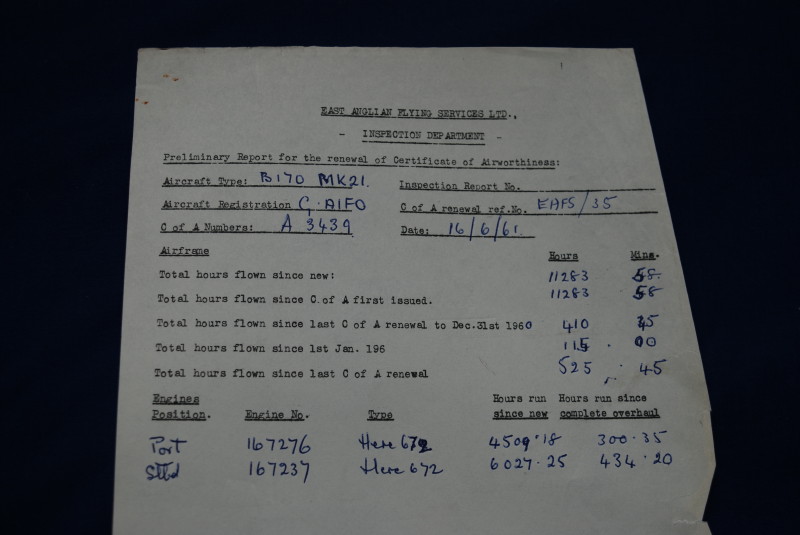 EAST ANGLIAN FLYING SERVICES LTD.,
- INSPECTION DEPARTMENT -
Preliminary Report for the renewal of Certificate of Airworthiness:
Aircraft Type: B170 MK21. Inspection Report No.
Aircraft Registration G.AIFO C of A renewal ref.No. EAFS/35
C of A Numbers: A 3439 Date: 16/6/61.
Airframe Hours Mins.
Total hours flown since new: 11283 58
Total hours flown since C.of A first issued. 11283 58
Total hours flown since last C of A renewal to Dec.31st 1960 410 45
Total hours flown since 1st Jan. 196 115 . 00
Total hours flown since last C of A renewal 525 . 45
Engines Hours run Hours run since
Position. Engine No. Type since new complete overhaul
Port 167276 Herc 672 4509.18 300.35
Stbd 167237 Herc 672 6027.25 434.20